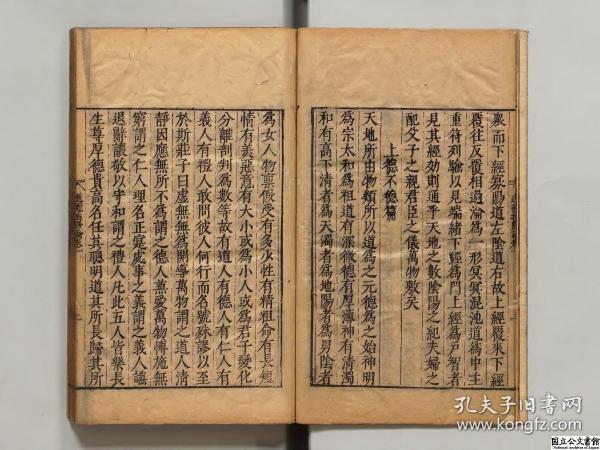 衆而下經寡陽道左陰道右故上經覆來下經
覆往反覆相過淪爲一形冥冥混沌道爲中主
重符列驗以見端緒下經爲門上經爲戶智者
見其經効則通乎天地之數陰陽之紀夫婦之
配父子之親君臣之儀萬物敷矣
上德不德篇
天地所由物類所以道爲之元德爲之始神明
爲宗太和爲祖道有深微德有厚薄神有清濁
和有高下清者爲天濁者爲地陽者爲男陰者
爲女人物稟假受有多少性有精粗命有長短
情有美惡意有大小或爲小人或爲君子變化
分離剖判爲數等故有道人有德人有仁人有
義人有禮人敢問彼人何行而名號殊謬以至
於斯莊子曰虛無無爲開導萬物謂之道人清
靜因應無所不爲謂之德人兼愛萬物博施無
窮謂之仁人理名正寔處事之義謂之義人謙
退辭讓敬以守和謂之禮人凡此五人皆樂長
生尊厚德貴高名任其聰明道其所長歸其所
孔夫子旧书网
www.kongfz.com
国立公文書館
National Archives of Japan